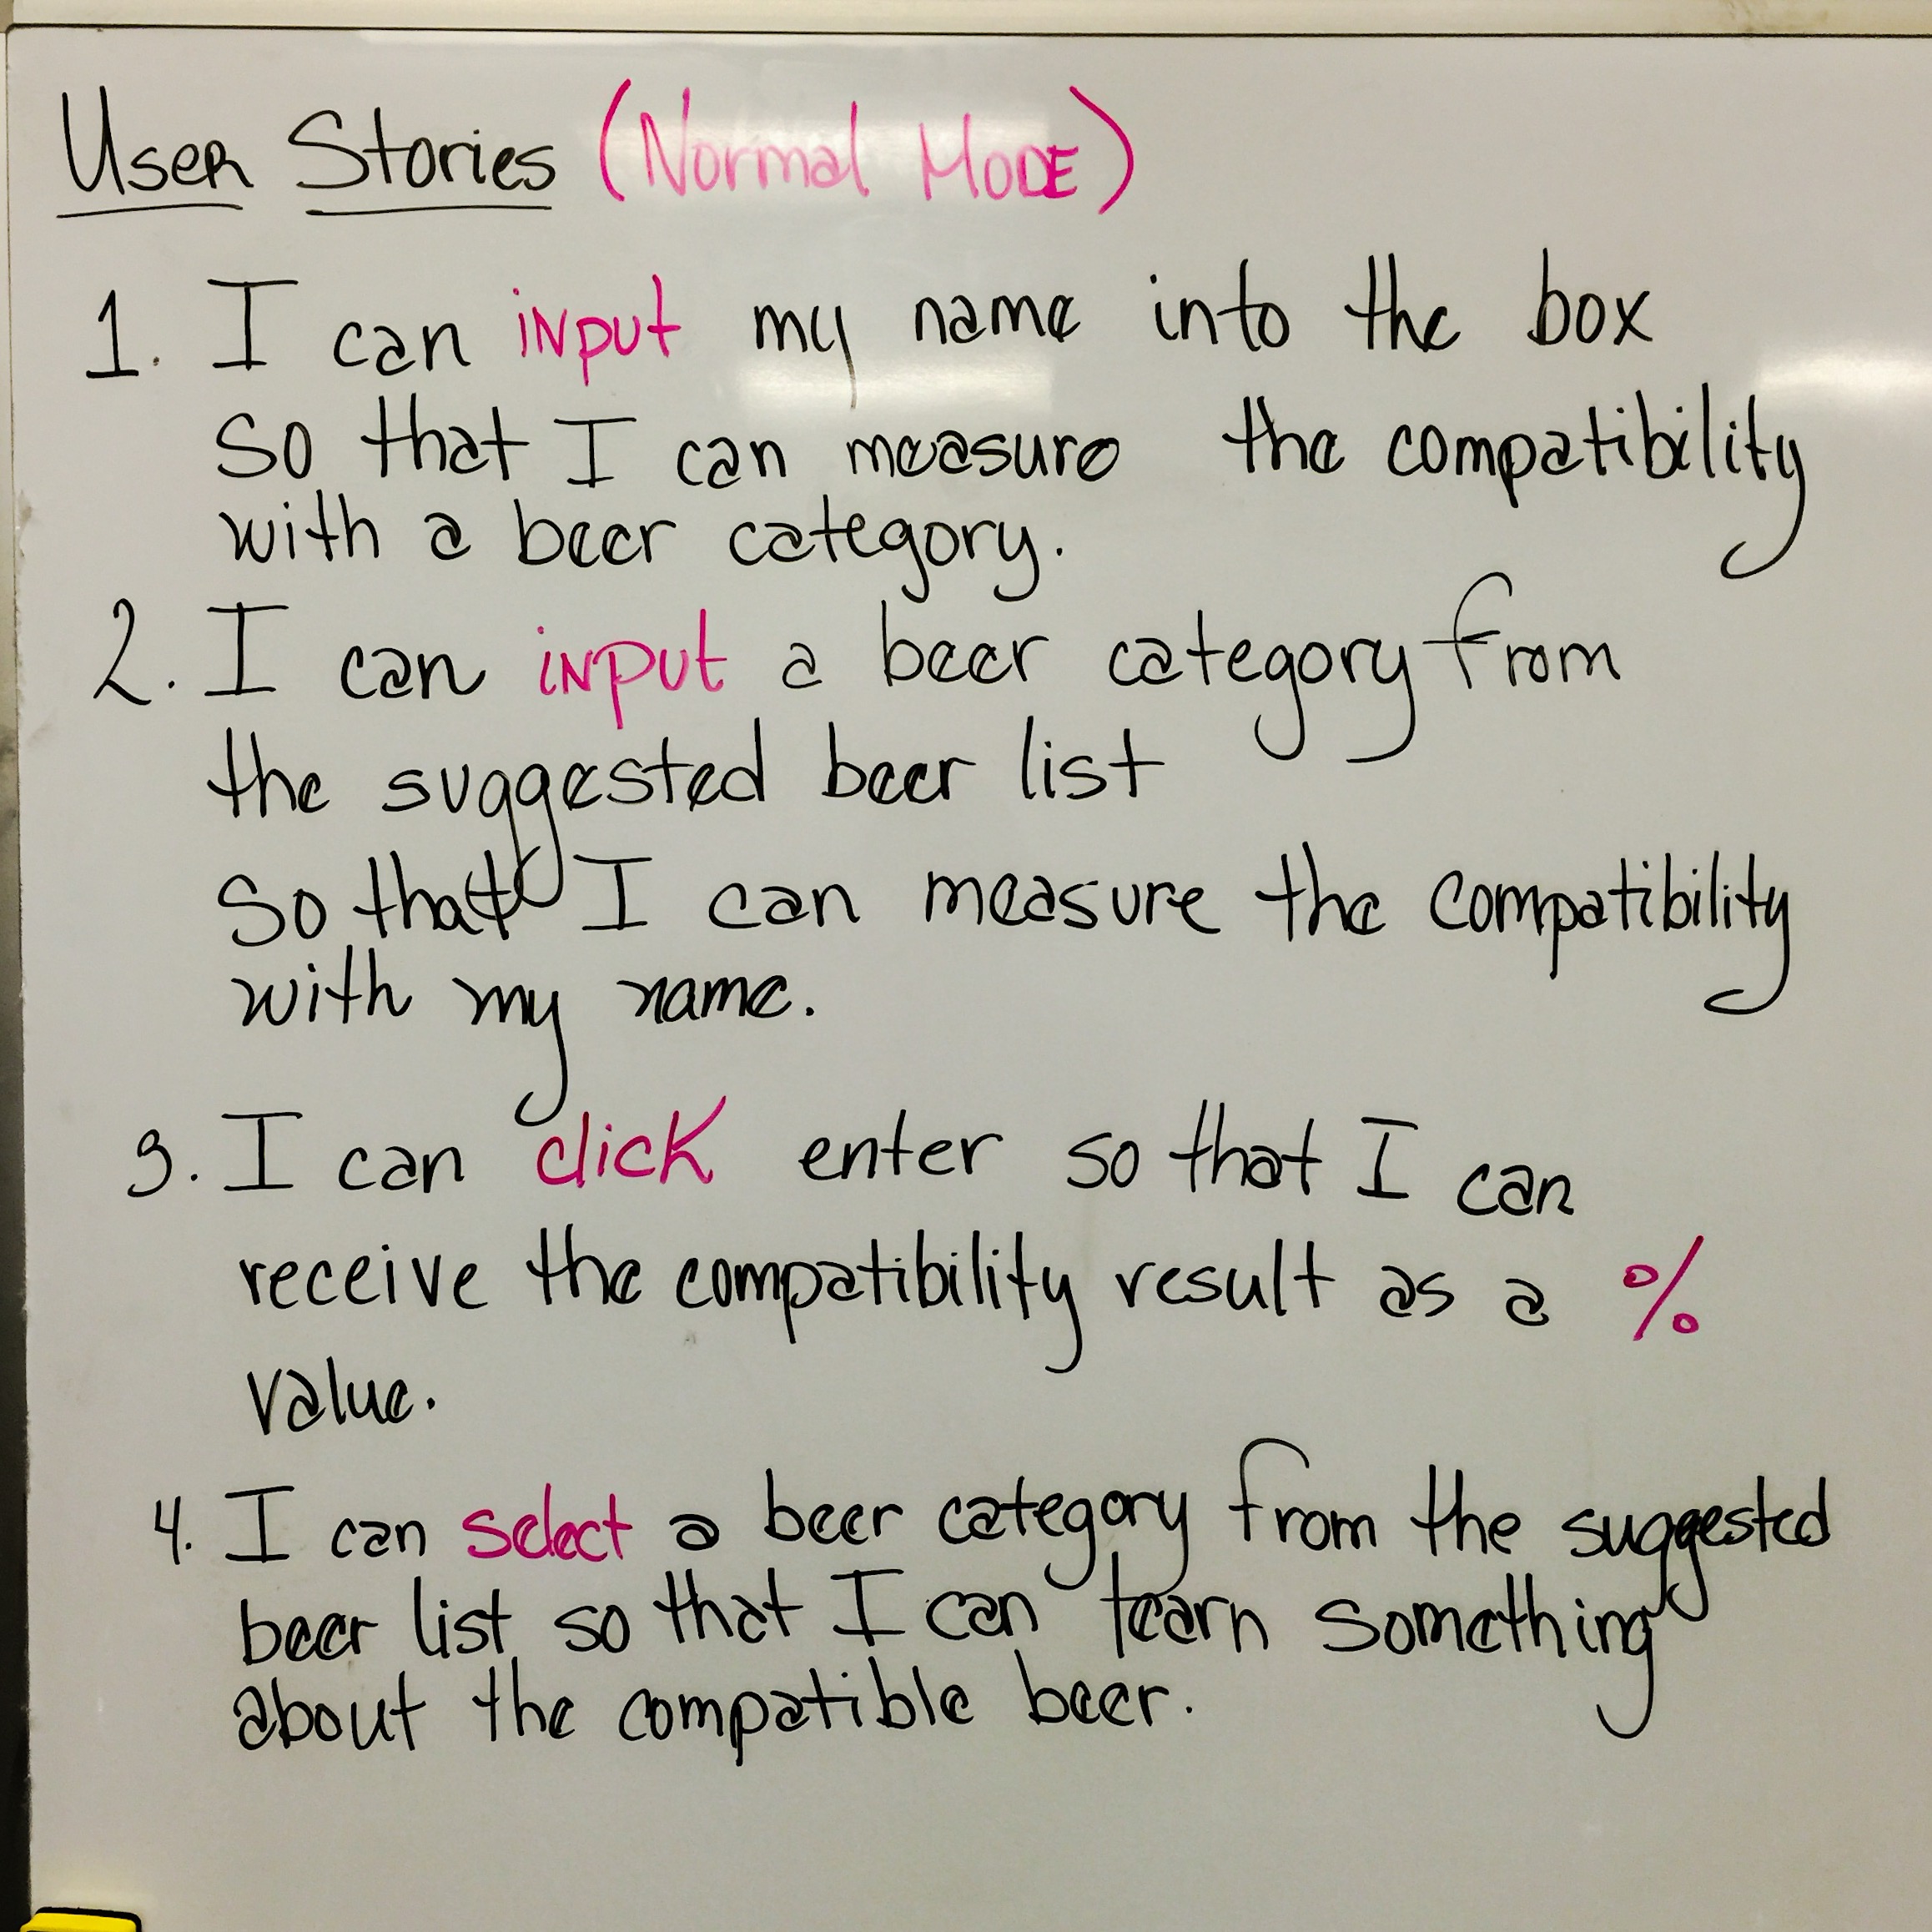 User Stories (Normal Mode)
1. I can input my name into the box
so that I can measure the compatibility
with a beer category.
2. I can input a beer category from
the suggested beer list
so that I can measure the compatibility
with my name.
3. I can click enter so that I can
receive the compatibility result as a %
value.
4. I can select a beer category from the suggested
beer list so that I can learn something
about the compatible beer.